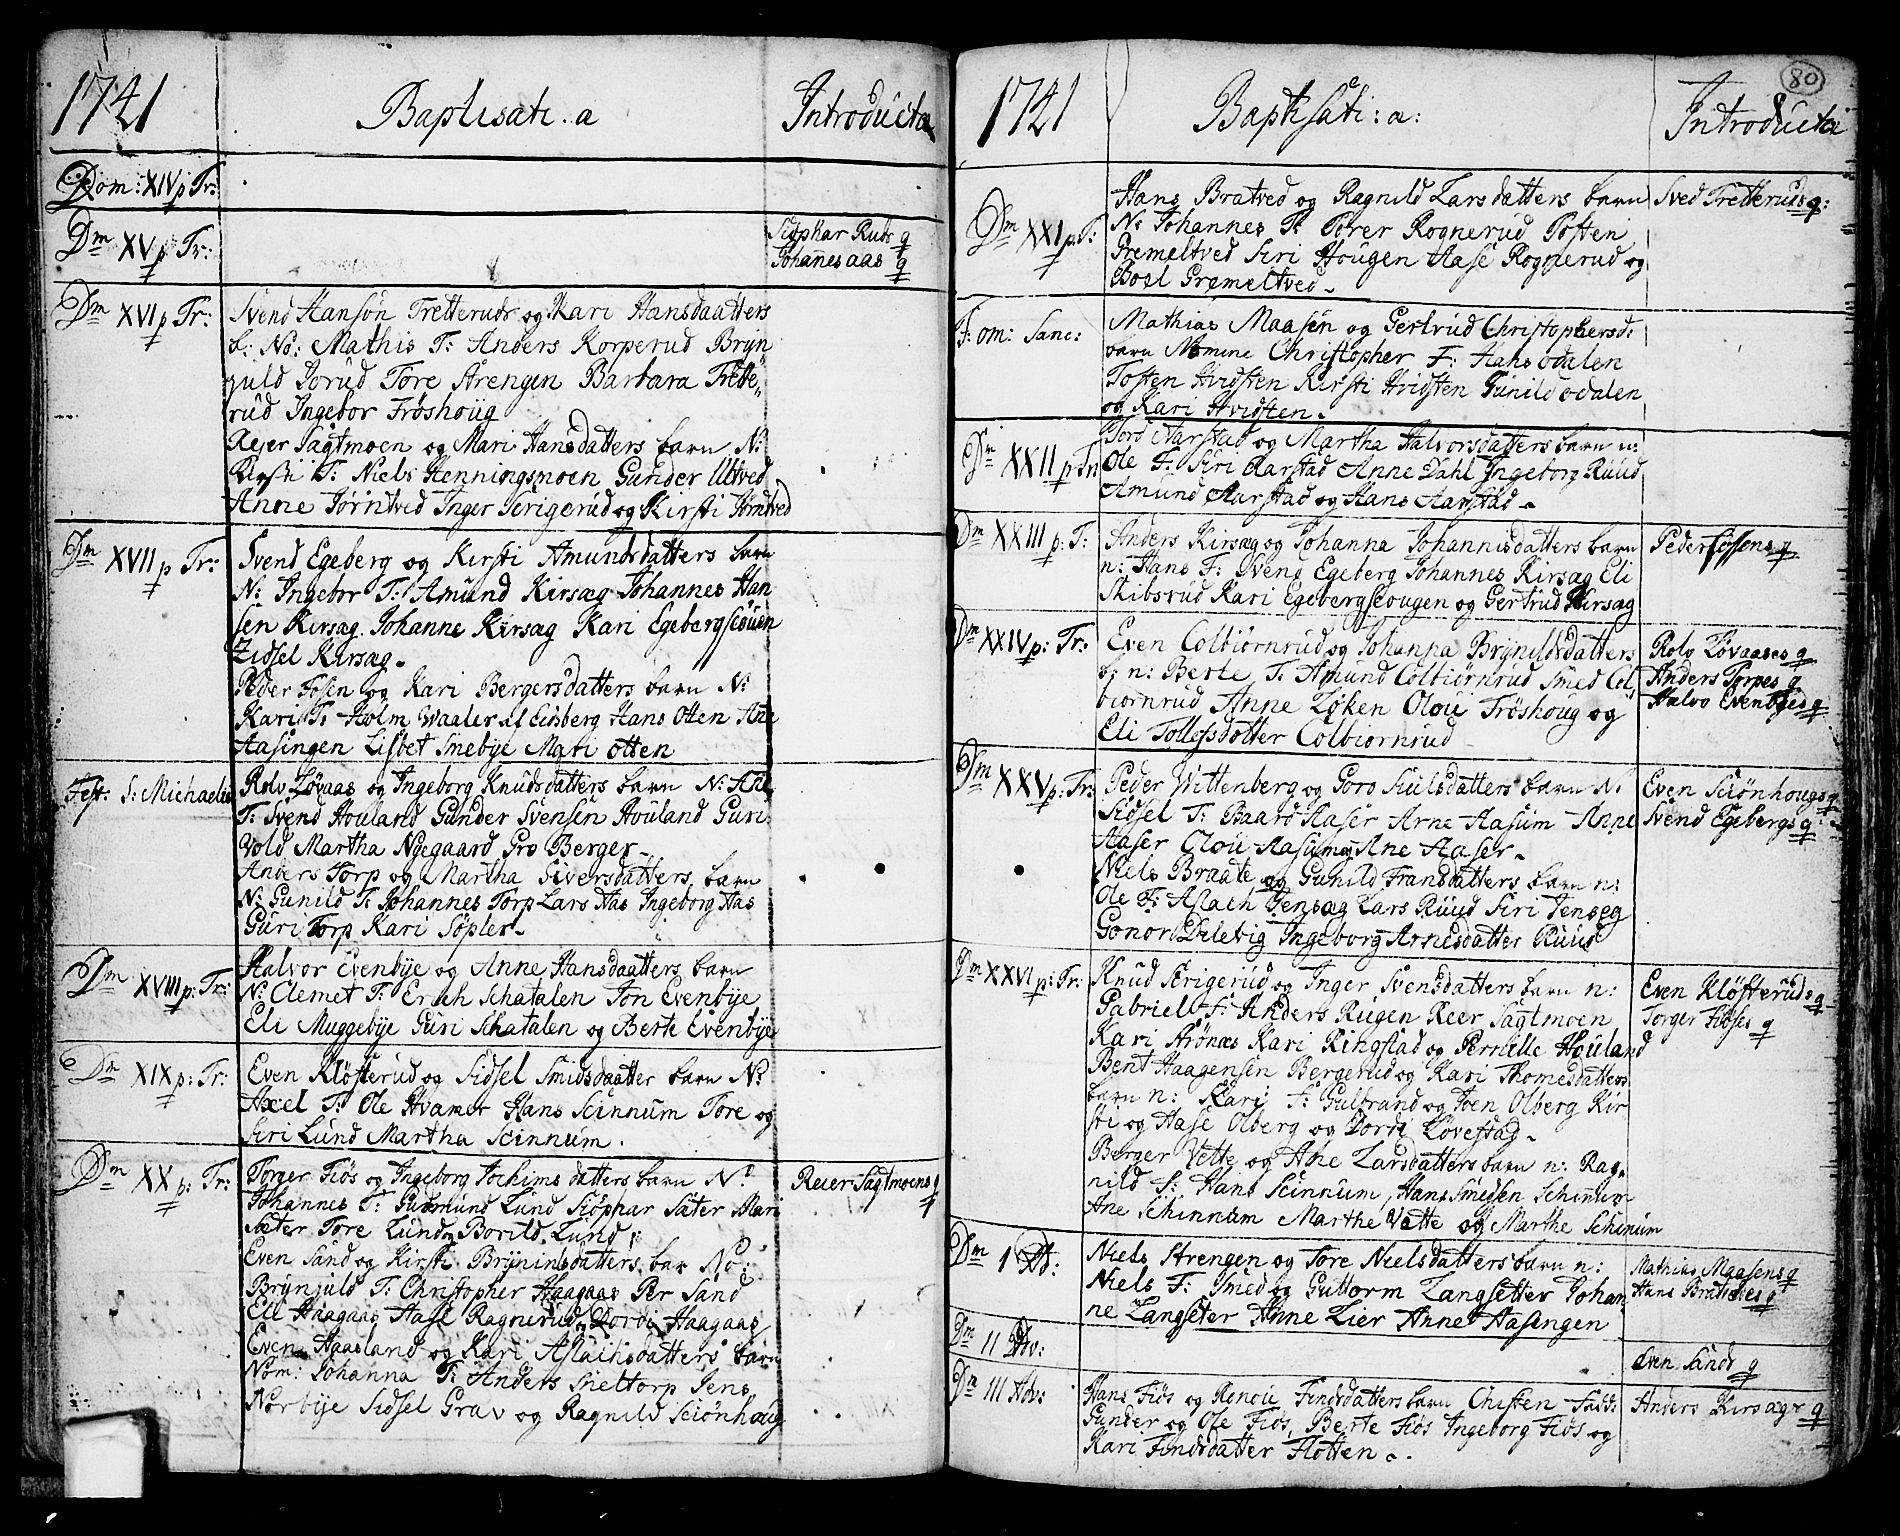 1741
Baptisati: a
Introducta
Dom: XIV p Tr:
Dm XV p Tr:
Siøphar Ruds q
Johanes aas q
Dm XVI p Tr:
Svend Hansøn Tretteruds og Kari Hansdaatters
b: No: Mathis T: Anders Korperud Bryn
guld Torud Tore Ārengen Barbara Trette,
rud Ingebor Frøshoug
Rejer Sagtmoen og Mari Hansdatters barn N:
Kirsti T: Niels Henningsmoen Gunder Ultved
Anne Jørntved Inger Serigerud og Kirsti Jørntved
Dm XVII p Tr:
Svend Egeberg og Kirsti Amundsdatters barn
N: Ingebor T: Amund Kirsæg Johannes Han
sen Kirsæg. Johanne Kirsæg Kari Egebergseøuen
Zidsel Kirsæg.
Peder Fosen og Kari Bergersdatters barn N:
Kari T: Holm Waaler af Eidsberg Hans Otten Ane
Aasingen Lisbet Smebye Mari Otten
Fest: S: Michaelis
Rolv Løvaas og Ingeborg Knudsdatters barn N: Ane
T: Svend Houland Gunder Svensen Houland Guri
Vold Martha Nøegaard Gro Berger
Anders Torp og Martha Siversdatters barn
N: Gunild T: Johannes Torp Lars Aas Ingeborg Aas
Guri Torp Kari Søpler
Dm XVIII p: Tr:
Halvor Evenbye og Anne Hansdaatters barn
N: Clemet T: Erich Schatalen Jon Evenbye
Eli Muggebye Guri Schatalen og Berte Evenbye
Dm XIX p: Tr:
Even Kløfterud og Sidsel Smidsdaatter barn N:
Axel T: Ole Hvamer Hans Scinnum Tore og
Siri Lund Martha Scinnum.
Dm XX p: Tr:
Torger Fiøs og Ingeborg Jochimsdatters barn N:
Johannes T: Gudmund Lund Siøphar Sæter Mari
Sæter Tore Lund Borild Lund
Reier Sagtmoens q
Even Sand og Kirsti Bryninlsdatters bar No:
Brynjuld T: Christopher Haagaas Per Sand
Eli Haagaas Aase Ragnerud Dordi Haagaas
Even Haasland og Kari Aslachsdatters barn
Nom: Johanna T: Anders Sneltorp Jens
Norbye Sidsel Grav og Ragnild Sciønhaug
80
1741
Baptisati: a:
Introducta
Dm XXI p T:
Hans Bratved og Ragnild Larsdatters barn
N: Johannes T: Torer Rognerud Tosten
Premeltved Siri Hougen Aase Rognerud og
Boel Gremeltved
Sved Tretteruds q:
F: om: Sanc:
Mathias Maasen og Gertrud Christophersd:
barn Nomine Christopher F: Hans Odalen
Tosten Hvidsten Kirsti Hvidsten Gunild Odalen
og Kari Hvidsten.
Dm XXII p Tr
Tord Aarstad og Martha Halvorsdatters barn n:
Ole F: Siri Aarstad Anne Dahl Ingeborg Ruud
Amund Aarstad og Hans Aarstad
Dm XXIII p: T:
Anders Kirsæg og Johanna Johannisdatters barn
n: Hans F: Svend Egeberg Johannes Kirsæg Eli
Skibsrud Kari Egebergseougen og Gertrud Kirsæg
Peder Fossens q
Dm XXIV p: Tr:
Even Colbiørnrud og Johanna Brynildsdatters
b: n: Berte T: Amund Colbiørnrud Smed Col
biørnrud Anne Løken Olou Frøshoug og
Eli Tollefsdotter Colbiørnrud
Rolv Løvaases q
Anders Torpes q
Halvo Evenbyes q
Dm XXV p: Tr:
Peder Wittenberg og Goro Siulsdatters barn N.
Sidsel T: Baard Aaser Arne Aasum Anne
Aaser Olou Aasum og Ane Aaser
Even Sciønhougs q
Svend Egebergs q
Niels Braate og Gunild Fransdatters barn n:
Ole F: Aslach Jensæg Lars Ruud Siri Jenseg
Gonor Dilevig Ingeborg Arnesdatter Ruud
Dm XXVI p: Tr:
Knud Serigerud og Inger Svensdatters barn n:
Gabriel F: Anders Rugen Reer Sagtmoen
Kari Arønæs Kari Ringstad og Pernille Houland
Even Kløfteruds q
Torger Fiøses q
Bent Haagensen Bergerud og Kari Thomesdatters
barn n: Kari F: Gulbrand og Joen Olberg Kir
sti og Aase Olberg og Dordi Løvestad
Berger Vette og Ane Larsdatters barn n: Rag,
nild F: Hans Scinnum, Hans Smedsen Schinnum
Ane Schinnum Marthe Vette og Marthe Schinum
Dm 1 Ad:
Niels Strengen og Tore Nielsdatters barn n:
Niels F: Smed og Guttorm Langsetter Johan
ne Langseter Anne Lier Anne Aasengen
Mathias Maasens q
Hans Bratvedes q
Dm II Adv:
Even Sands q
Dm III Adv:
Hans Fiøs og Ronou Findsdatters barn Chisten Fadd:
Gunder og Ole Fiøs, Berte Fiøs Ingeborg Fiøs og
Kari Findsdatter Flotten.
Anders Kirsæger q